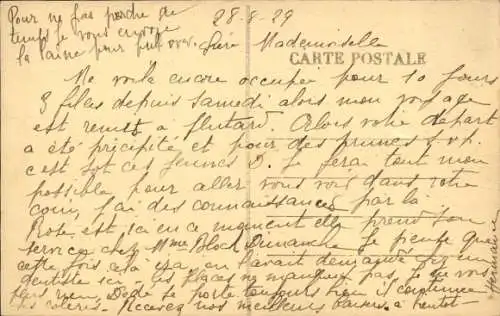 Pour ne pas perdre de
temps je vous envoie
la laine pour pull over.
28-8-29
Mademoiselle
CARTE POSTALE
Me voila encore occupée pour 10 jours
3 filles depuis samedi alors mon voyage
est remis à plutard. Alors votre départ
a été précipité et pour des prunes
c'est sot ces jeunes D. Je ferai tout mon
possible pour aller vous voir dans votre
coin, j'ai des connaissances par là
est ici en ce moment elle prend son
service chez Mme Bloch Dimanche Je pense que
cette fois çà y a, on l'avait demandé
dentiste ici - les places ne manquent pas, je ne vois
plus rien, Dédé se porte toujours bien il continue
ses - Recevez nos meilleurs baisers à bientôt -